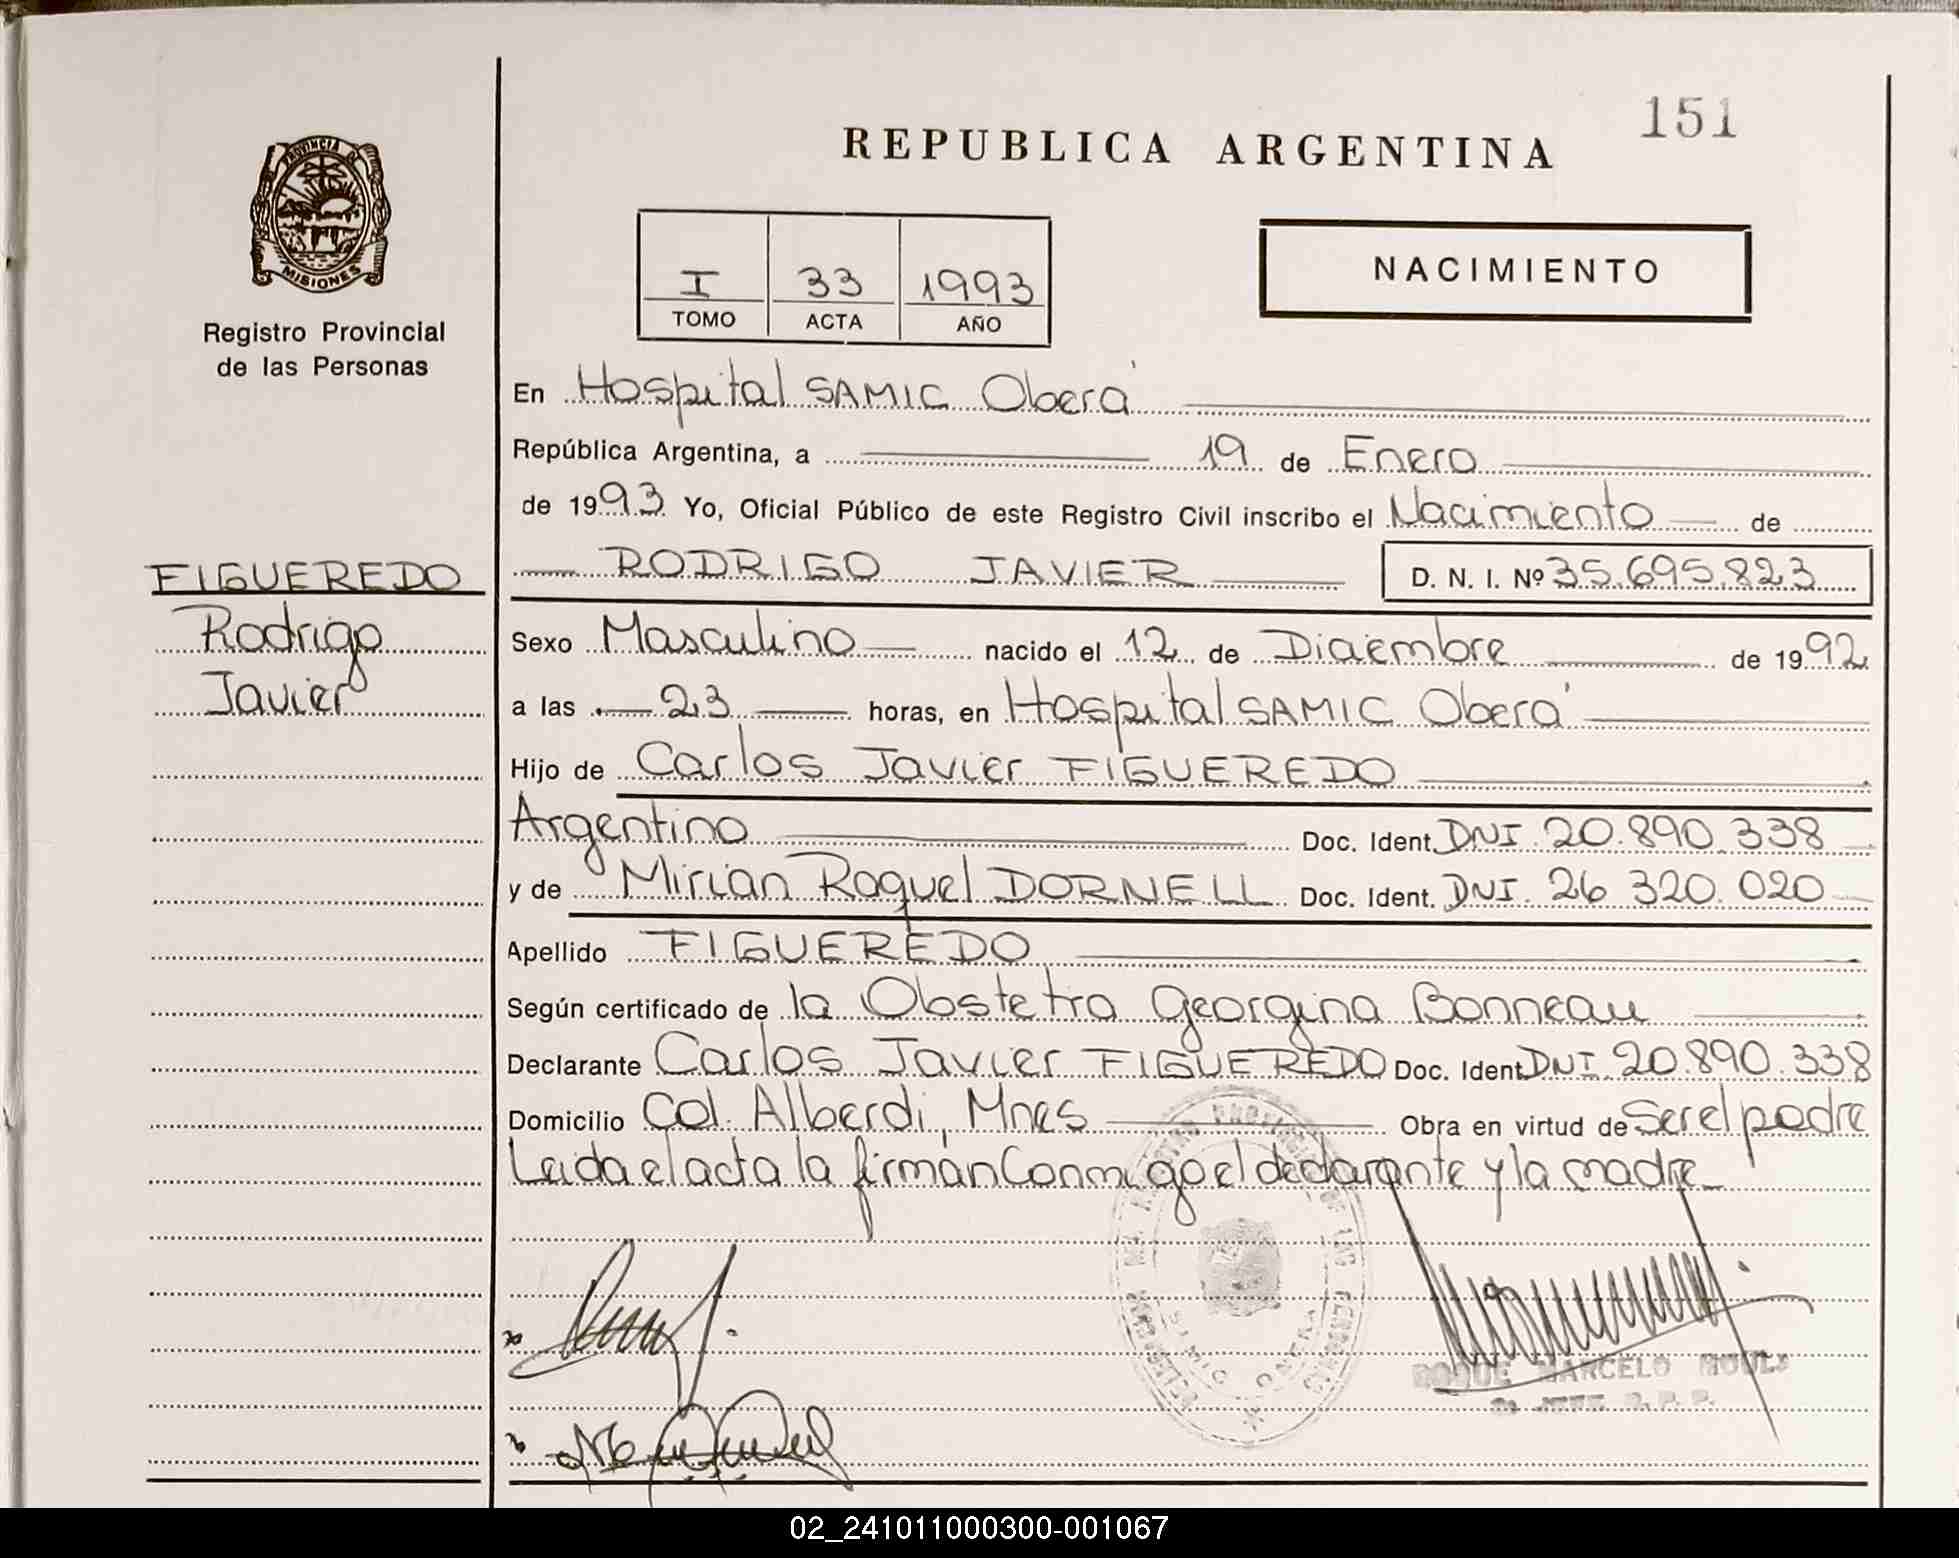 151
REPUBLICA ARGENTINA
PROVINCIA DE
MISIONES
Registro Provincial
de las Personas
I 33 1993
TOMO ACTA AÑO
NACIMIENTO
En Hospital SAMIC Oberá
República Argentina, a 19 de Enero
de 1993 Yo, Oficial Público de este Registro Civil inscribo el Nacimiento de
RODRIGO JAVIER D. N. I. Nº 35.695.823
FIGUEREDO
Rodrigo
Javier
Sexo Masculino nacido el 12 de Diciembre de 1992
a las 23 horas, en Hospital SAMIC Oberá
Hijo de Carlos Javier FIGUEREDO
Argentino Doc. Ident. DNI 20.890.338
y de Mirian Raquel DORNELL Doc. Ident. DNI. 26 320.020
Apellido FIGUEREDO
Según certificado de la Obstetra Georgina Bonneau
Declarante Carlos Javier FIGUEREDO Doc. Ident. DNI. 20.890.338
Domicilio Col. Alberdi, Mnes Obra en virtud de Ser el padre
Leida el acta la firman Conmigo el declarante y la madre
ROQUE MARCELO
02_241011000300-001067